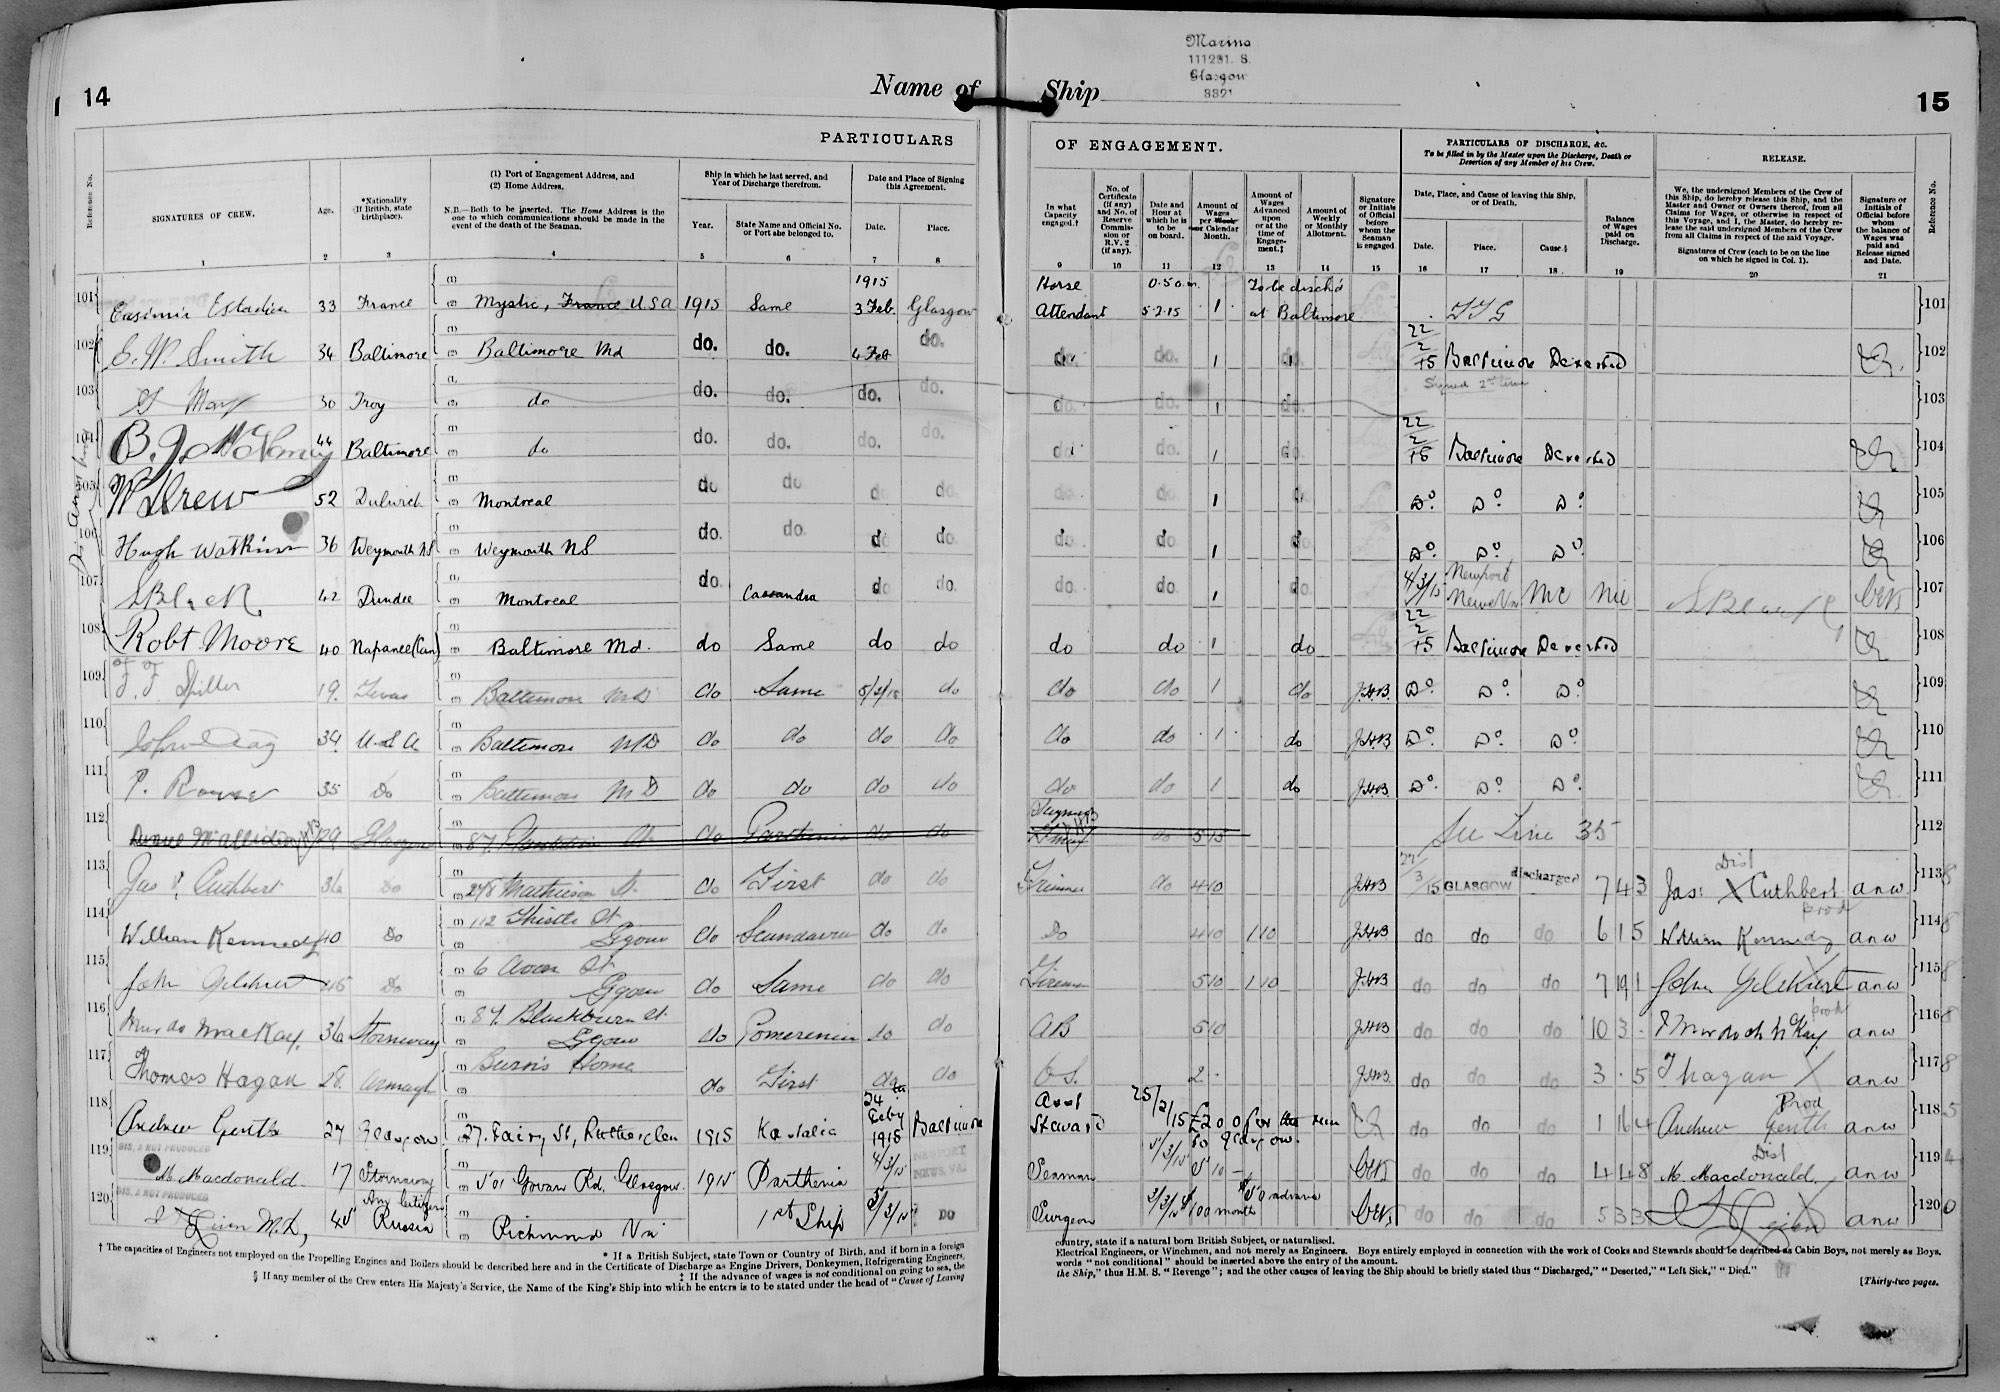 Marina
111231. S.
Glasgow
3321
14
Name of Ship
15
PARTICULARS OF ENGAGEMENT.
PARTICULARS OF DISCHARGE, &c.
To be filled in by the Master upon the Discharge, Death or Desertion of any Member of his Crew.
RELEASE.
Reference No.
SIGNATURES OF CREW.
Age.
*Nationality (If British, state birthplace).
(1) Port of Engagement Address, and
(2) Home Address.
N.B.—Both to be inserted. The Home Address is the one to which communications should be made in the event of the death of the Seaman.
Ship in which he last served, and Year of Discharge therefrom.
Year.
State Name and Official No. or Port she belonged to.
Date and Place of Signing this Agreement.
Date.
Place.
In what Capacity engaged.†
No. of Certificate (if any) and No. of Reserve Commission or R.V. 2 (if any).
Date and Hour at which he is to be on board.
Amount of Wages per Week or Calendar Month.
Amount of Wages Advanced upon or at the time of Engagement.‡
Amount of Weekly or Monthly Allotment.
Signature or Initials of Official before whom the Seaman is engaged
Date, Place, and Cause of leaving this Ship, or of Death.
Date.
Place.
Cause.§
Balance of Wages paid on Discharge.
We, the undersigned Members of the Crew of this Ship, do hereby release this Ship, and the Master and Owner or Owners thereof, from all Claims for Wages, or otherwise in respect of this Voyage, and I, the Master, do hereby release the said undersigned Members of the Crew from all Claims in respect of the said Voyage.
Signatures of Crew (each to be on the line on which he signed in Col. 1).
Signature or Initials of Official before whom the balance of Wages was paid and Release signed and Date.
Reference No.
1 2 3 4 5 6 7 8 9 10 11 12 13 14 15 16 17 18 19 20 21
101 33 France Mystic, France USA 1915 Same 1915 3 Feb Glasgow Horse Attendant 5.2.15 1 To be disch'd at Baltimore 101
102 C. W. Smith 34 Baltimore Baltimore Md do. do. 4 Feb do. do. do. 1 do. 22/2/15 Baltimore Deserted 102
103 30 Troy do do. do. do. do. do. do. 1 do. Signed 2nd time 103
104 44 Baltimore do do. do. do. do. do. do. 1 do. 22/2/15 Baltimore Deserted 104
105 W Drew 52 Dulwich Montreal do do do do. do. do. 1 Do. Do. Do. 105
106 Hugh Watkins 36 Weymouth NS Weymouth NS do. do. do do. do. do. 1 Do. Do. Do. 106
107 S Black 42 Dundee Montreal do. Cassandra do do. do do 1 do 4/3/15 Newport News Va MC Nil 107
108 Robt Moore 40 Napanee (Can) Baltimore Md. do Same do do do do 1 do 22/2/15 Baltimore Deserted 108
109 19 Texas Baltimore MD do Same 5/2/15 do do do 1 do JHB Do. Do. Do. 109
110 34 U.S.A Baltimore MD do do do do do do 1 do JHB Do. Do. Do. 110
111 35 Do Baltimore MD do do do do do do 1 do JHB Do. Do. Do. 111
112 29 Glasgow 87 do Parthenia do do do 5 15 See Line 35 112
113 Jas Cuthbert 36 Do 248 Mathieson St. do First do do Trimmer do 4 10 JHB 27/3/15 GLASGOW discharged 7 4 3 Dist Jas: X Cuthbert anw 113
114 William Kennedy 40 Do 112 Thistle St Ggow do do do Do 4 10 1 10 JHB do do do 6 1 5 prod William Kennedy anw 114
115 John Gilchrist 45 Do 6 Avon St Ggow do Same do do Fireman 5 10 1 10 JHB do do do 7 19 1 John Gilchrist anw 115
116 Murdo MacKay. 36 Stornoway 84 Blackburn St Ggow do Pomeranian do do AB 5 10 JHB do do do 10 3 prod Murdoch McKay. anw 116
117 Thomas Hagan 28 Armagh Burn's Home do First do do O.S. 2 JHB do do do 3 . 5 T hagan anw 117
118 Andrew Gentle 27 Glasgow 27. Fairy St, Rutherglen 1915 Kastalia 24 Feby 1915 Baltimore Asst Steward 25/2/15 £2 0 0 for the run to Glasgow. do do do 1 16 4 Prod Andrew Gentle anw 118
DIS. A NOT PRODUCED
119 M. Macdonald. 17 Stornoway 501 Govan Rd. Glasgow. 1915 Parthenia 4/3/15 NEWPORT NEWS, VA. Seaman 5/3/15 5 10 do do do 4 4 8 Dist M. Macdonald. anw 119
DIS. A NOT PRODUCED
120 M.D, 45 Russia Richmond Va 1st Ship 5/3/15 DO Surgeon 100 month $50 advance do do do 5 3 3 anw 120
† The capacities of Engineers not employed on the Propelling Engines and Boilers should be described here and in the Certificate of Discharge as Engine Drivers, Donkeymen, Refrigerating Engineers,
* If a British Subject, state Town or Country of Birth, and if born in a foreign
‡ If the advance of wages is not conditional on going to sea, the
§ If any member of the Crew enters His Majesty's Service, the Name of the King's Ship into which he enters is to be stated under the head of "Cause of Leaving
country, state if a natural born British Subject, or naturalised.
Electrical Engineers, or Winchmen, and not merely as Engineers. Boys entirely employed in connection with the work of Cooks and Stewards should be described as Cabin Boys, not merely as Boys.
words "not conditional" should be inserted above the entry of the amount.
the Ship," thus H.M. S. "Revenge"; and the other causes of leaving the Ship should be briefly stated thus "Discharged," "Deserted," "Left Sick," "Died."
[Thirty-two pages.